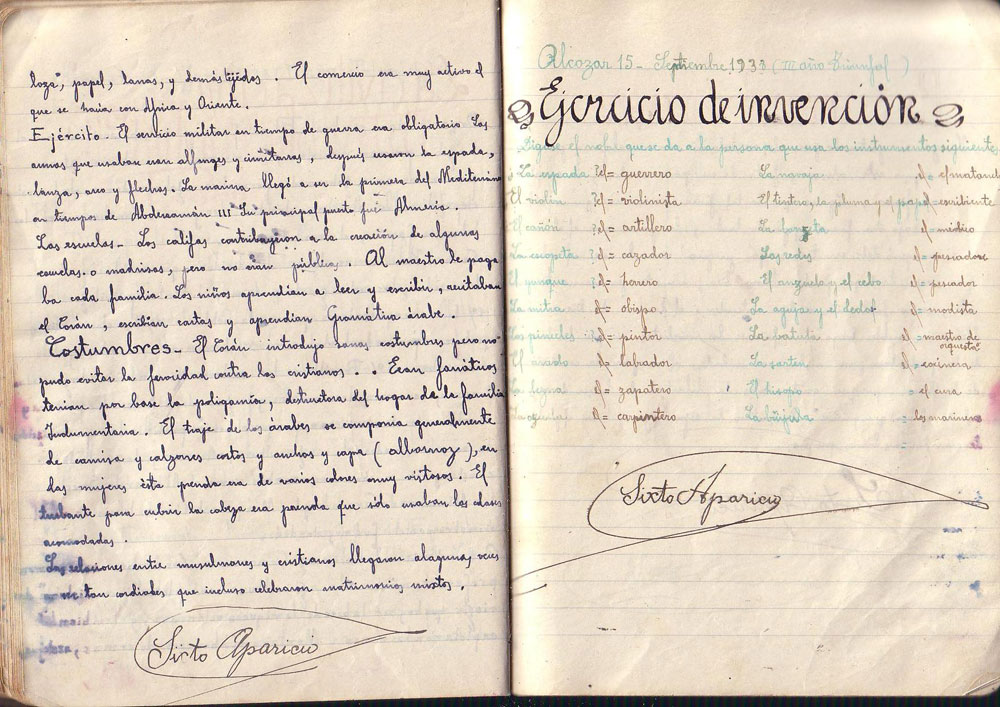 loza, papel, lanas, y demás tejidos. El comercio era muy activo el
que se hacia con Africa y Oriente.
Ejército. El servicio militar en tiempo de guerra era obligatorio Las
armas que usaban eran alfanges y cimitarras, después usaron la espada,
lanza, arco y flechas. La marina llegó a ser la primera del Mediterráneo
en tiempos de Abderramán III Su principal puerto fué Almeria.
Las escuelas- Los califas contribuyeron a la creación de algunas
escuelas o madrisas, pero no eran pública. Al maestro le paga
ba cada familia. Los niños aprendian a leer y escribir, recitaban
el Corán, escribian cartas y aprendian Gramática árabe.
Costumbres- El Corán introdujo sanas costumbres pero no
pudo evitar la ferocidad contra los cristianos.. Eran fanáticos
tenian por base la poligamia, destructora del hogar de la familia
Indumentaria. El traje de los árabes se componia generalmente
de camisa y calzones cortos y anchos y capa (albornoz), en
las mujeres ésta prenda era de varios colores muy vistosos. El
turbante para cubrir la cabeza era prenda que sólo usaban las clases
acomodadas.
Las relaciones entre musulmanes y cristianos llegaron algunas veces
a ser tan cordiales que incluso celebraron matrimonios mixtos.
Sixto Aparicio
Alcozar 15- Septiembre 193 (III año Triunfal)
Ejercicio de invención
Digase el que se da a la persona que usa los instrumentos siguientes
La espada ?d= guerrero La navaja d= el matan
El violín ?d= violinista El tintero, la pluma y el papel escribiente
El cañón ?d= artillero La d médico
La escopeta ?d= cazador Las redes d= pescadores
El yunque d= herrero El anzuelo y el cebo d= pescador
La mitra d= obispo La aguja y el dedal d= modista
Los pinceles d= pintor La batuta d= maestro de orquesta
El arado d= labrador La sarten d= cocinera
La lezna d= zapatero El hisopo d= el cura
La d= carpintero La brújula = los marineros
Sixto Aparicio